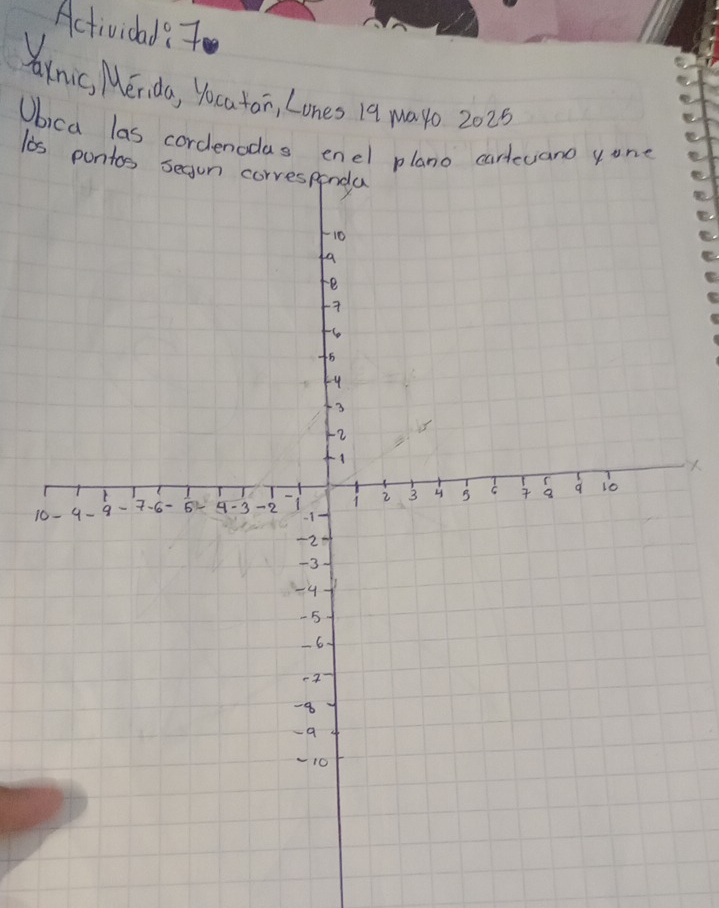 Actividad: 7
Yaxnic, Mérida, Yocatan, Lunes 19 Mayo 2025
Ubica las cordenadas en el plano carteciano y one
los pontos segun corresponda
y
10
9
8
7
6
5
4
3
2
1
10- 9- 8- 7-6- 5- 4-3-2 -1 1 2 3 4 5 6 7 8 9 10 X
-1
-2
-3
-4
-5
-6
-7
-8
-9
-10